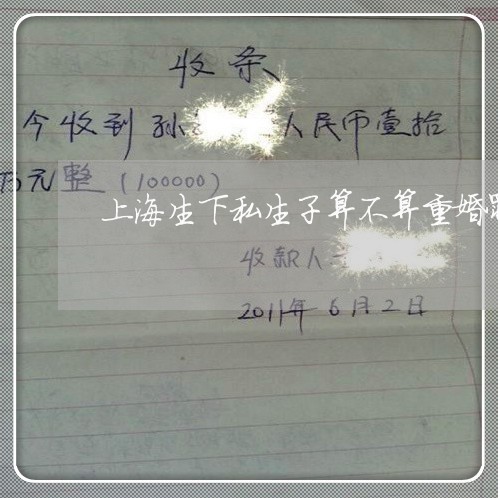 收条
今收到孙 人民币壹拾
万元整(100000)
上海生下私生子算不算重婚
收款人
2011年6月2日